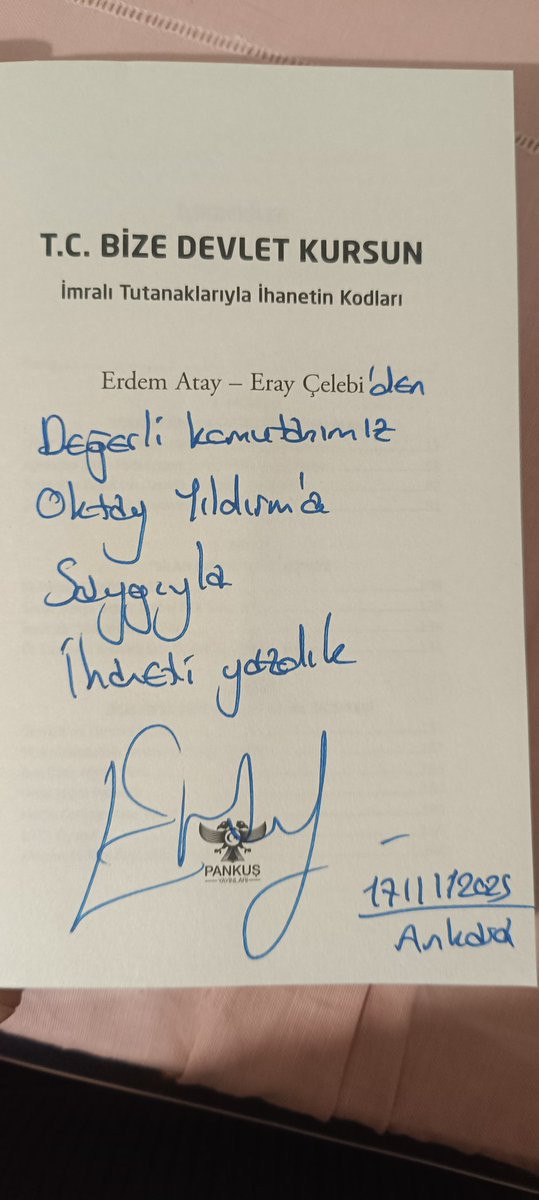 T.C. BİZE DEVLET KURSUN
İmralı Tutanaklarıyla İhanetin Kodları
Erdem Atay – Eray Çelebi'den
Değerli komutanımız
Oktay Yıldırım'a
Saygıyla
İhaneti yazdık
PANKUŞ
YAYINLARI
17/11/2025
Ankara